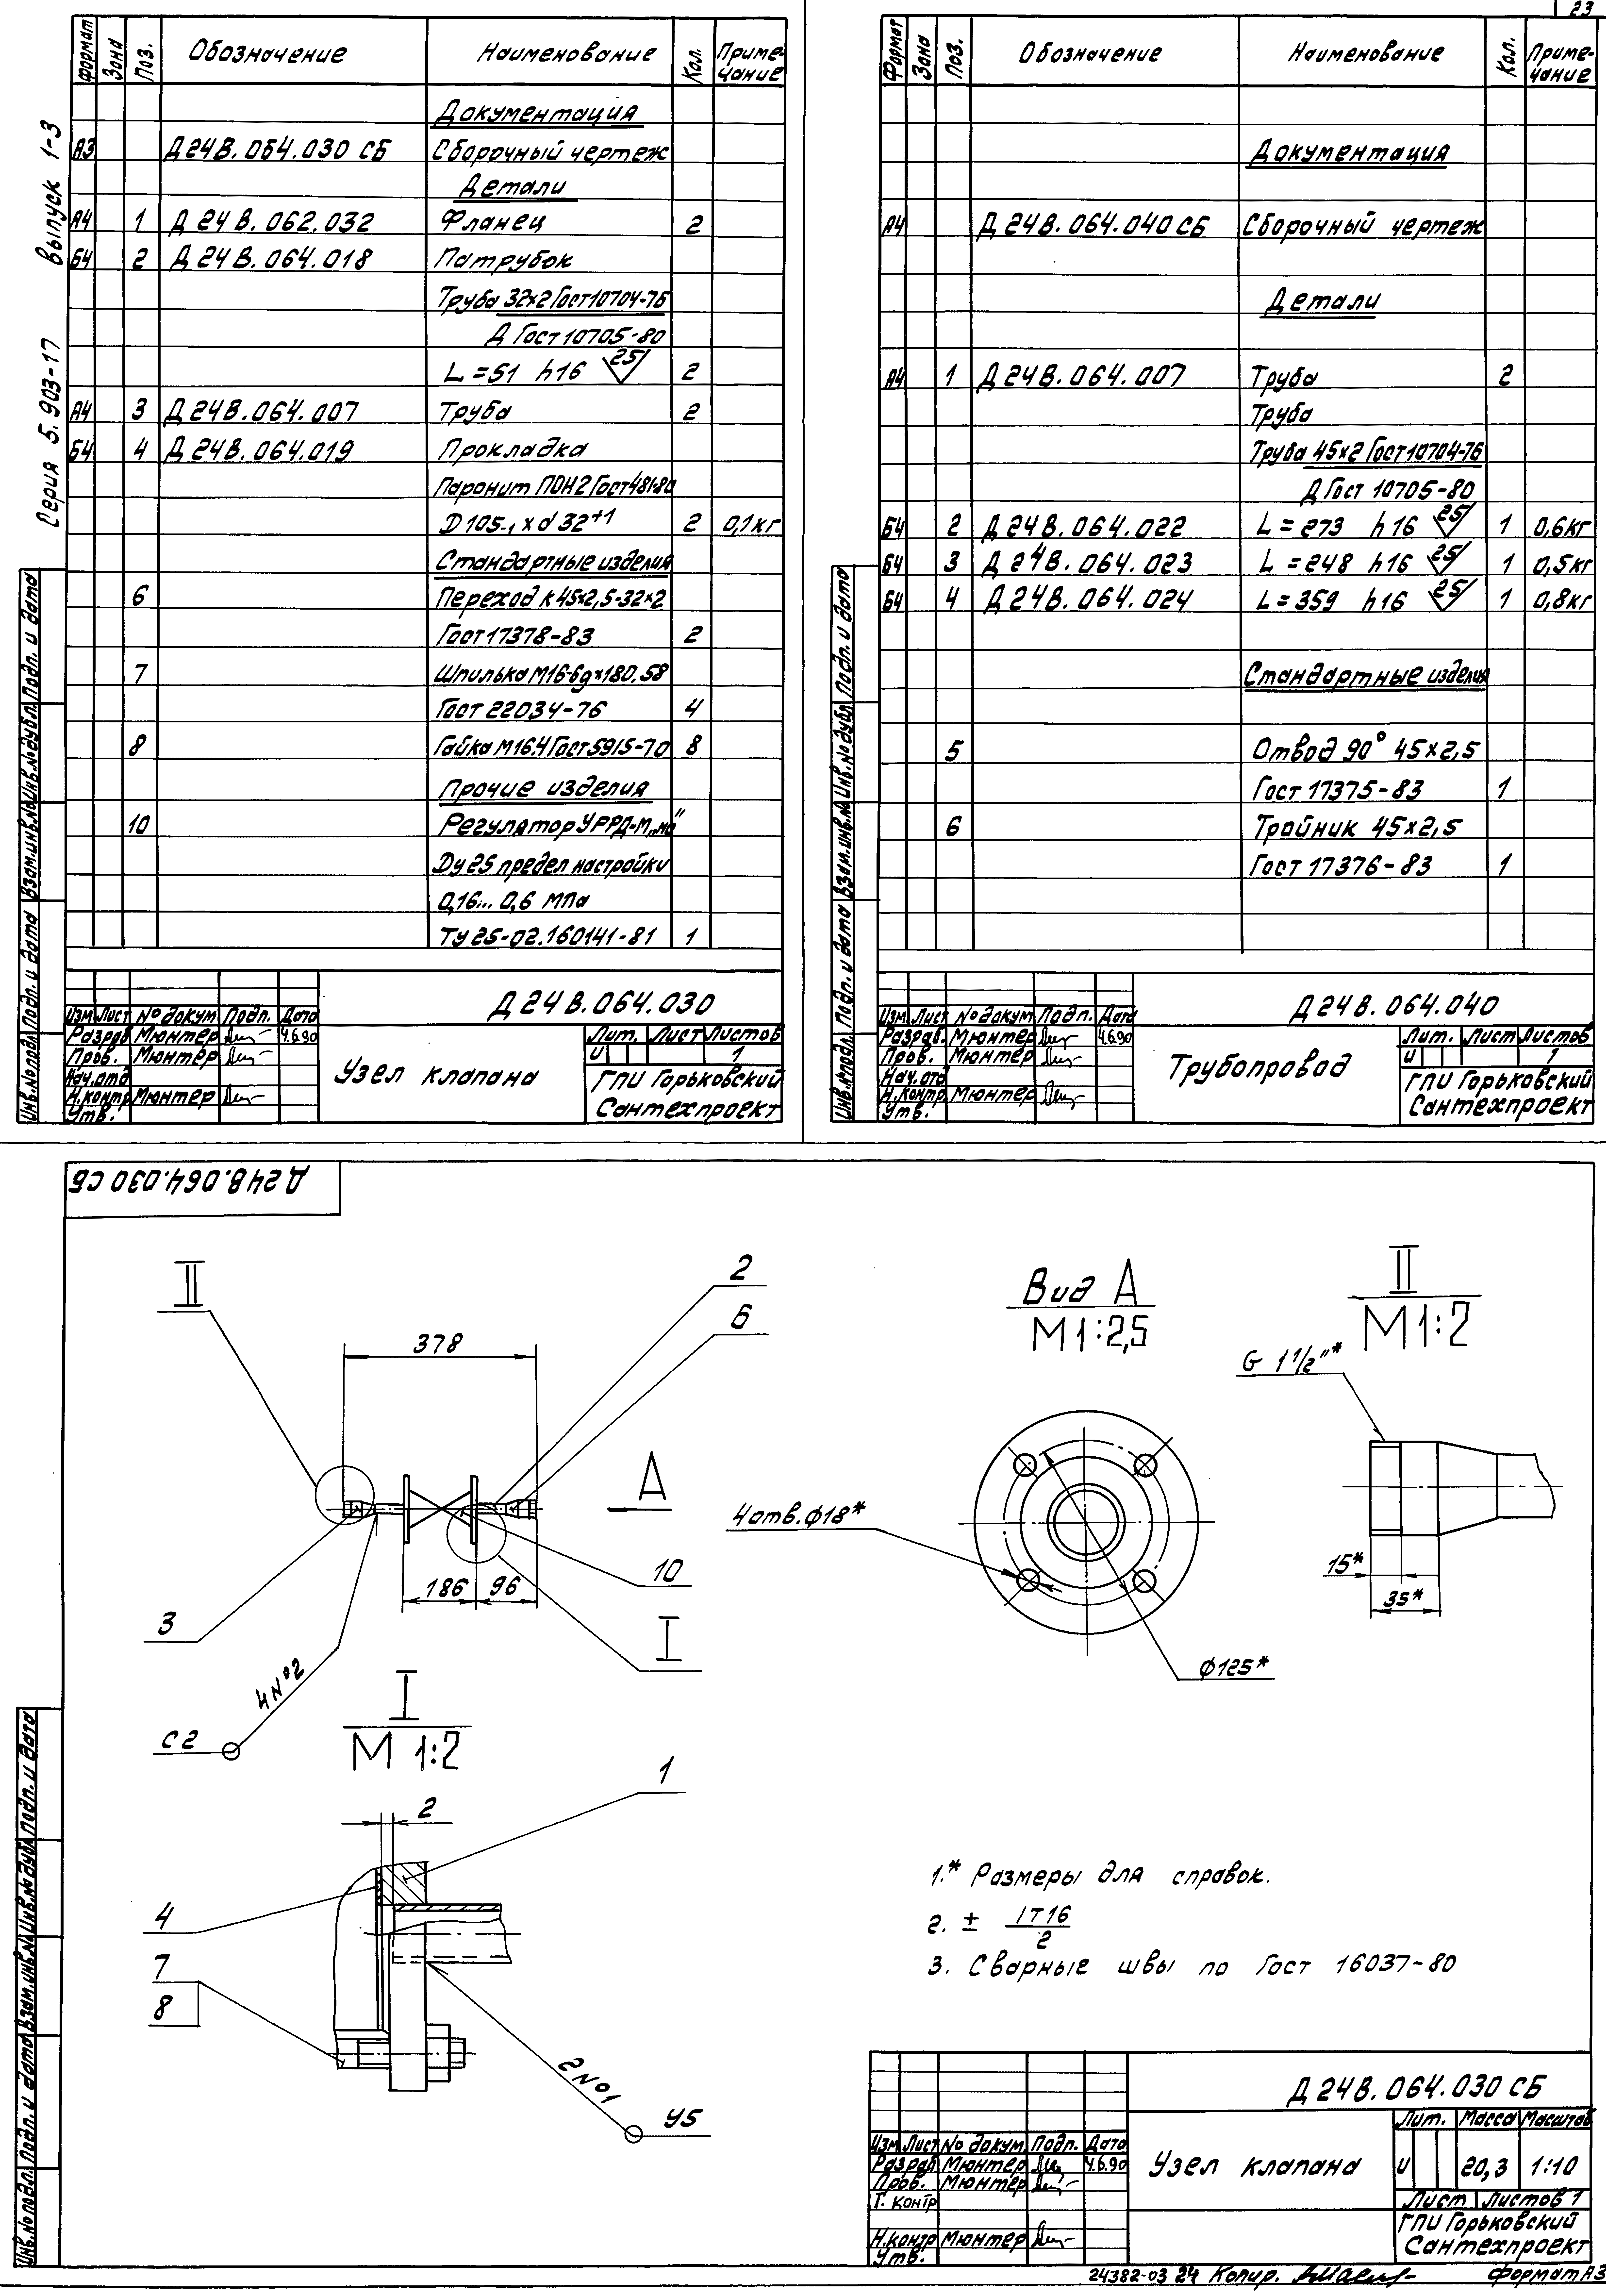 23
Выпуск 1-3
Серия 5.903-17
Формат Зона Поз. Обозначение Наименование Кол. Приме-чание
Документация
А3 Д24В.064.030 СБ Сборочный чертеж
Детали
А4 1 Д24В.062.032 Фланец 2
Б4 2 Д24В.064.018 Патрубок
Труба 32х2 Гост 10704-76
Д Гост 10705-80
L=51 h16 25 2
А4 3 Д24В.064.007 Труба 2
Б4 4 Д24В.064.019 Прокладка
Паронит ПОН2 Гост 481-80
D105-1 х d32+1 2 0,1кг
Стандартные изделия
6 Переход К45х2,5-32х2
Гост 17378-83 2
7 Шпилька М16-6gх180.58
Гост 22034-76 4
8 Гайка М16.4 Гост 5915-70 8
Прочие изделия
10 Регулятор УРРД-М „но"
Dу 25 предел настройки
0,16... 0,6 МПа
ТУ 25-02.160141-81 1
Инв.№подл. Подп. и дата Взам.инв.№ Инв.№дубл. Подп. и дата
Д24В.064.030
Изм Лист № докум Подп. Дата
Разраб Мюнтер 4.6.90
Пров. Мюнтер
Нач.отд
Н.контр Мюнтер
Утв.
Узел клапана
Лит. Лист Листов
И 1
ГПИ Горьковский
Сантехпроект
Формат Зона Поз. Обозначение Наименование Кол. Приме-чание
Документация
А4 Д24В.064.040 СБ Сборочный чертеж
Детали
А4 1 Д24В.064.007 Труба 2
Труба
Труба 45х2 Гост 10704-76
Д Гост 10705-80
Б4 2 Д24В.064.022 L=273 h16 25 1 0,6кг
Б4 3 Д24В.064.023 L=248 h16 25 1 0,5кг
Б4 4 Д24В.064.024 L=359 h16 25 1 0,8кг
Стандартные изделия
5 Отвод 90° 45х2,5
Гост 17375-83 1
6 Тройник 45х2,5
Гост 17376-83 1
Инв.№подл. Подп. и дата Взам.инв.№ Инв.№дубл. Подп. и дата
Д24В.064.040
Изм Лист № докум Подп. Дата
Разраб. Мюнтер 4.6.90
Пров. Мюнтер
Нач.отд
Н.контр. Мюнтер
Утв.
Трубопровод
Лит. Лист Листов
И 1
ГПИ Горьковский
Сантехпроект
Д24В.064.030 СБ
II
378
2
6
А
3
186
96
10
I
4№2
С2
Вид А
М1:2,5
4отв.ф18*
ф125*
II
М1:2
G 1 1/2"*
15*
35*
I
М 1:2
2
1
4
7
8
2№1
У5
1.* Размеры для справок.
2. ± IT16/2
3. Сварные швы по Гост 16037-80
Инв.№подл. Подп. и дата Взам.инв.№ Инв.№дубл. Подп. и дата
Д24В.064.030 СБ
Изм Лист № докум. Подп. Дата
Разраб Мюнтер 4.6.90
Пров. Мюнтер
Т. контр
Н.контр Мюнтер
Утв.
Узел клапана
Лит. Масса Масштаб
И 20,3 1:10
Лист Листов 1
ГПИ Горьковский
Сантехпроект
24382-03 24 Копир. Формат А3